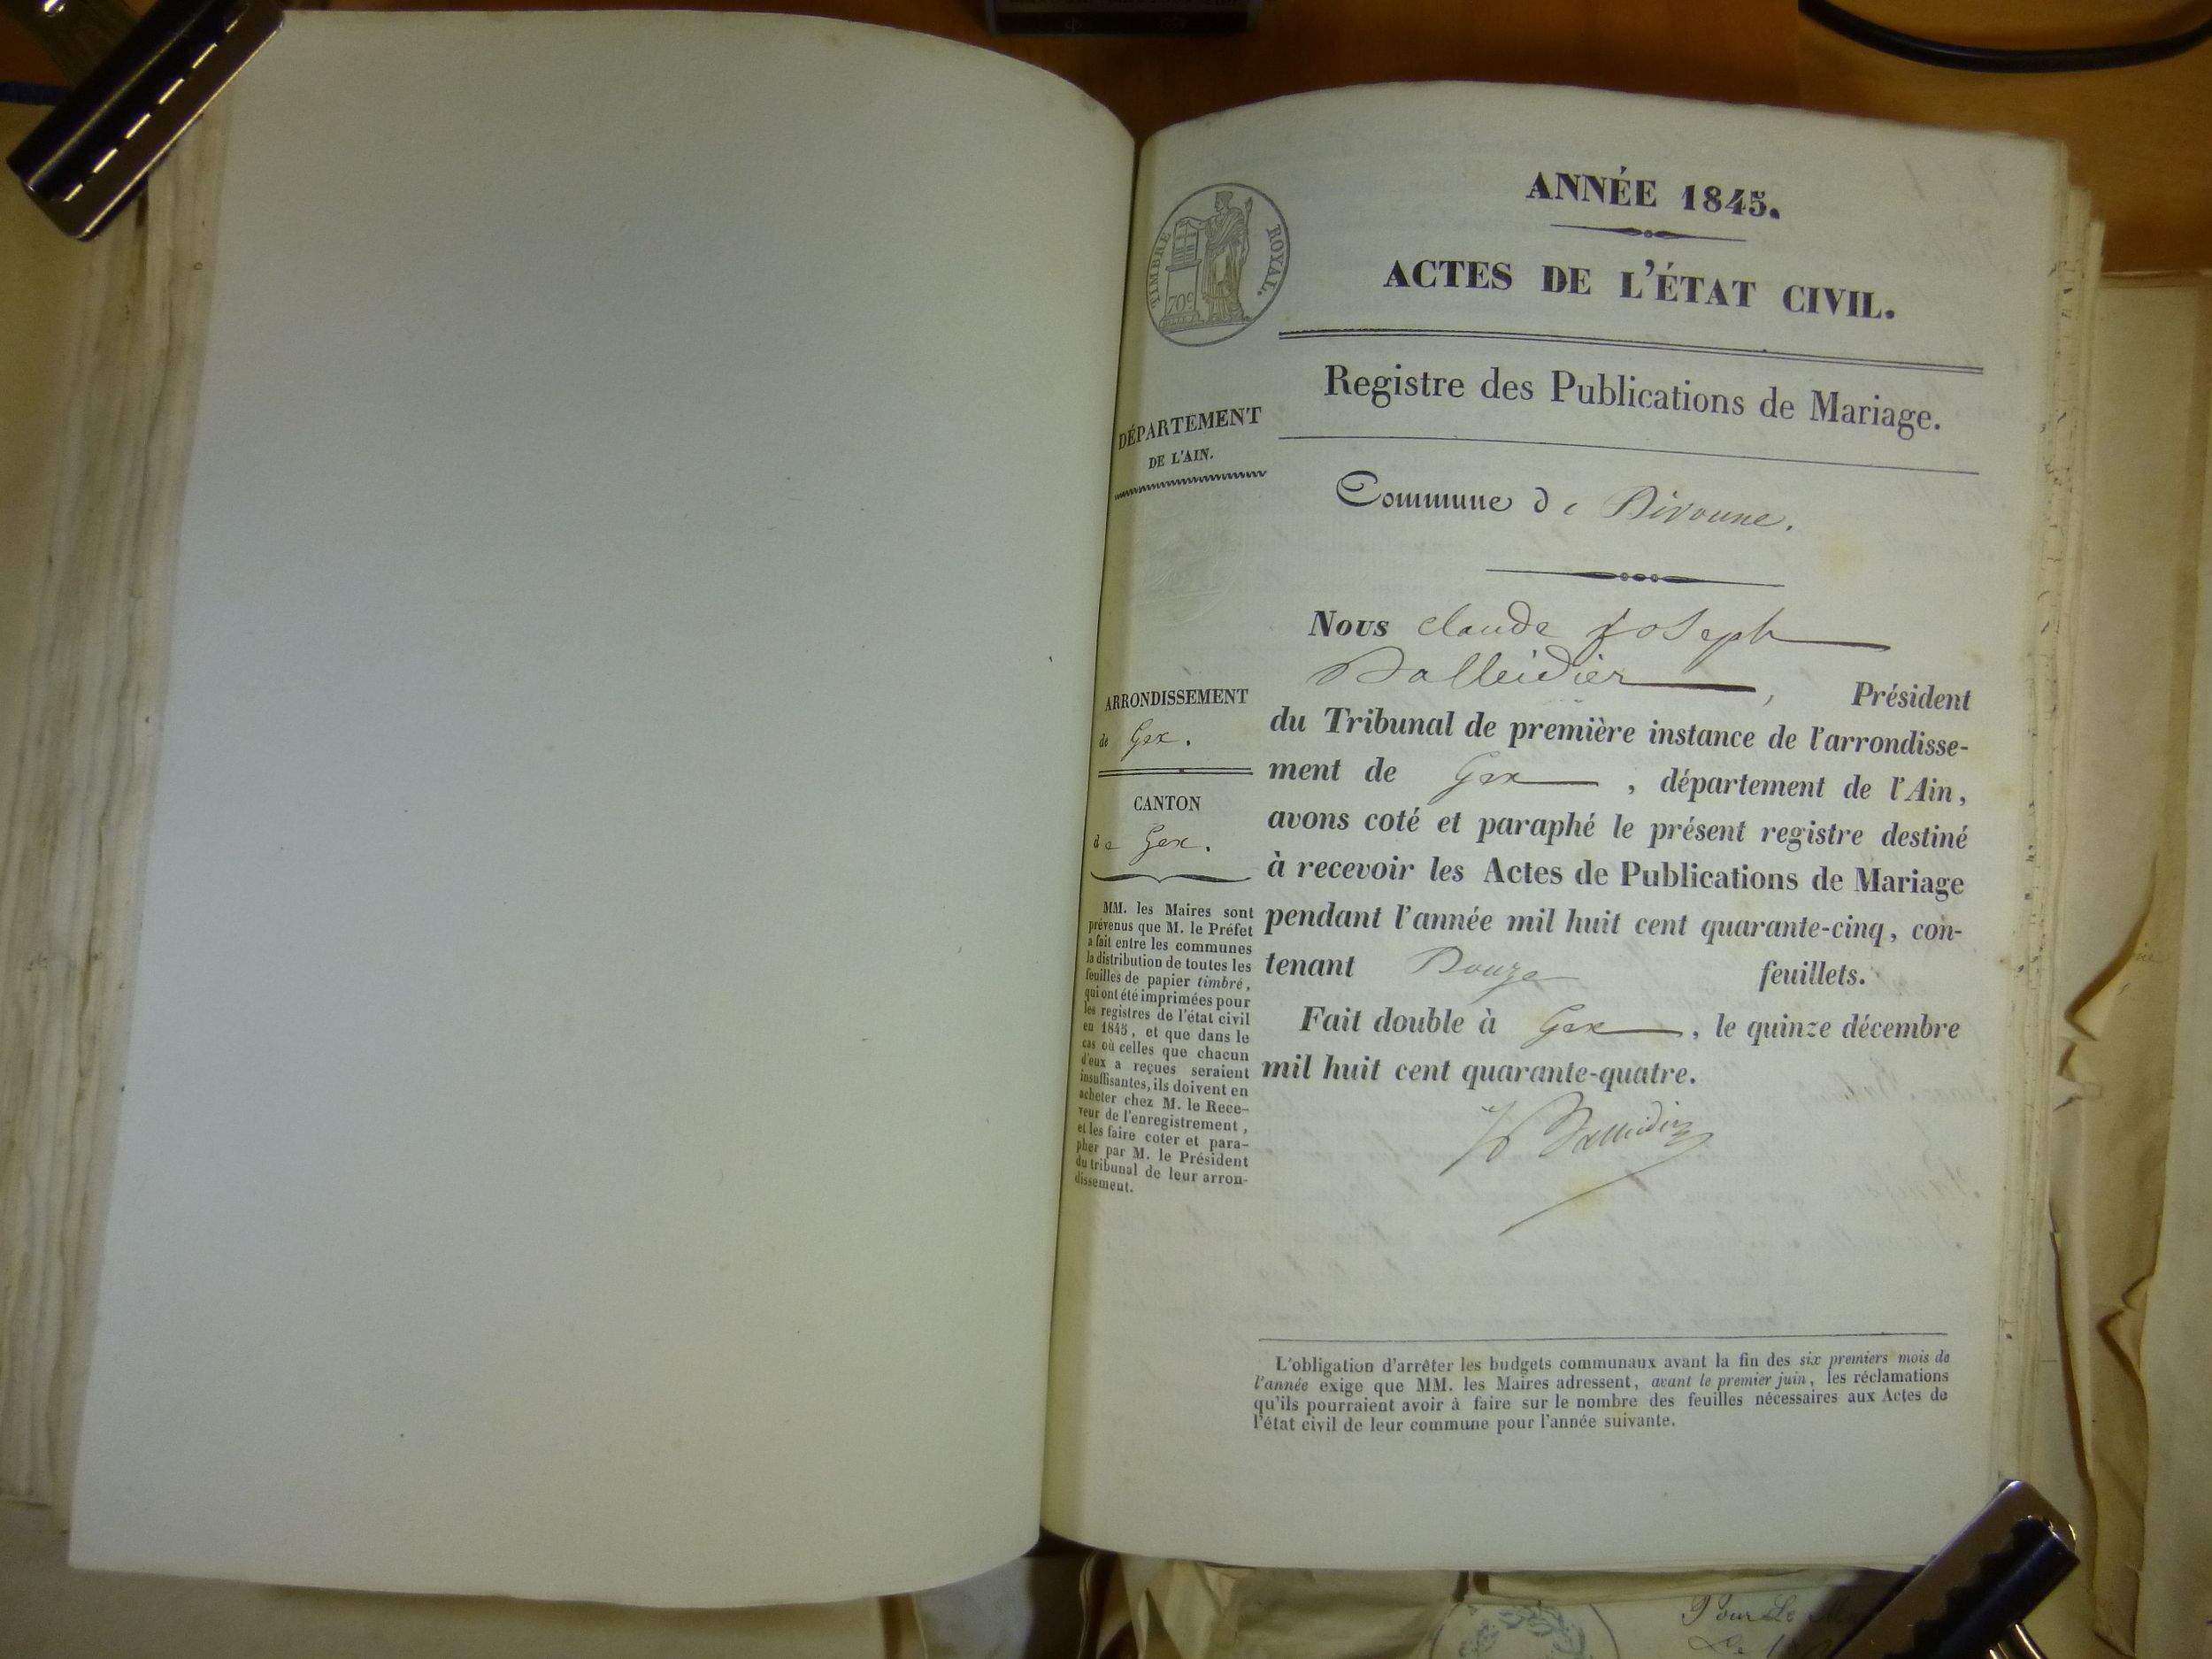 ANNÉE 1845.
ACTES DE L'ÉTAT CIVIL.
TIMBRE ROYAL.
70c
Registre des Publications de Mariage.
DÉPARTEMENT
DE L'AIN.
Commune de Divonne.
Nous Claude Joseph
Balleidier, Président
du Tribunal de première instance de l'arrondisse-
ment de Gex, département de l'Ain,
avons coté et paraphé le présent registre destiné
à recevoir les Actes de Publications de Mariage
pendant l'année mil huit cent quarante-cinq, con-
tenant Douze feuillets.
Fait double à Gex, le quinze décembre
mil huit cent quarante-quatre.
Balleidier
ARRONDISSEMENT
de Gex.
CANTON
de Gex.
MM. les Maires sont
prévenus que M. le Préfet
a fait entre les communes
la distribution de toutes les
feuilles de papier timbré,
qui ont été imprimées pour
les registres de l'état civil
en 1845, et que dans le
cas où celles que chacun
d'eux a reçues seraient
insuffisantes, ils doivent en
acheter chez M. le Rece-
veur de l'enregistrement,
et les faire coter et para-
pher par M. le Président
du tribunal de leur arron-
dissement.
L'obligation d'arrêter les budgets communaux avant la fin des six premiers mois de
l'année exige que MM. les Maires adressent, avant le premier juin, les réclamations
qu'ils pourraient avoir à faire sur le nombre des feuilles nécessaires aux Actes de
l'état civil de leur commune pour l'année suivante.
Pour Le